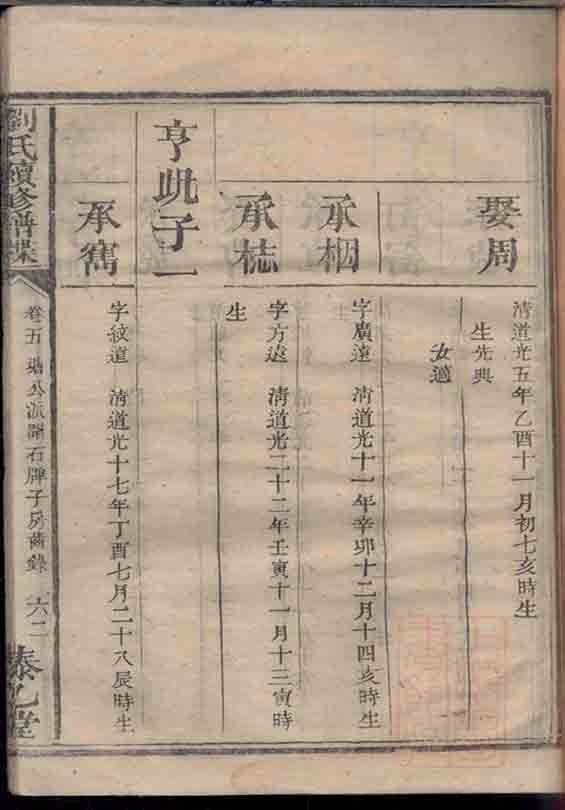 娶周
清道光五年乙酉十一月初七亥時生
生先典
女適
承梱
字廣遠 清道光十一年辛卯十二月十四亥時生
承梽
字方遠 清道光二十二年壬寅十一月十三寅時
生
亨玭子一
承嶲
字紋道 清道光十七年丁酉七月二十八辰時生
劉氏續修譜牒
卷五 公派 石牌子房齒錄 六二
泰 堂